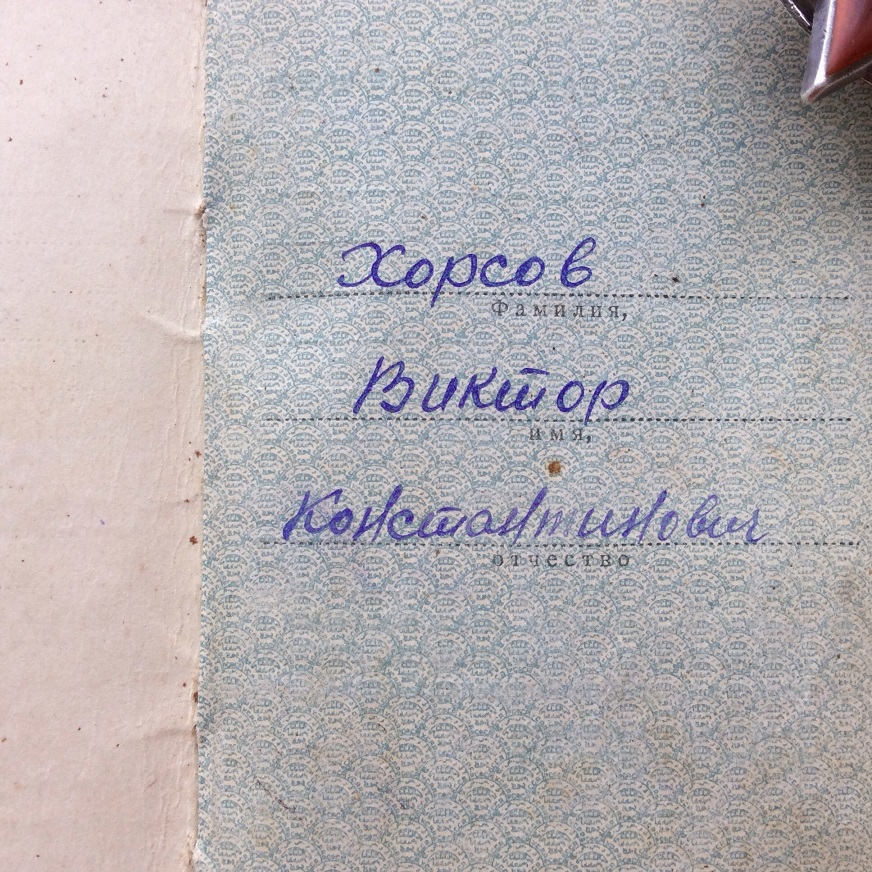 Хорсов
Фамилия,
Виктор
имя,
Константинович
отчество